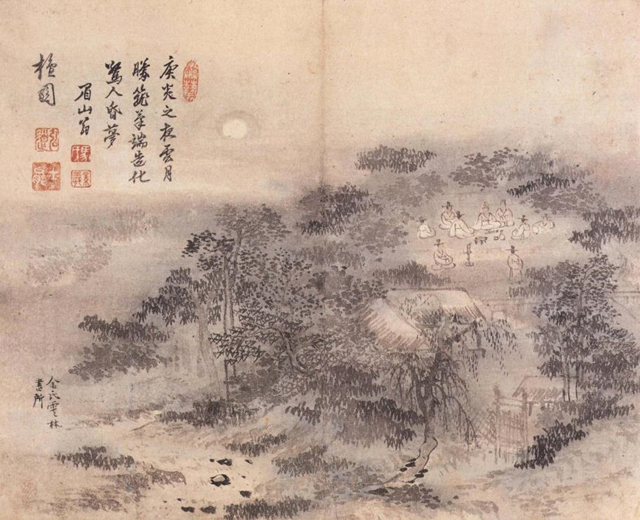 庚炎之夜雲月
朦朧筆端造化
驚人昏夢
眉山翁
檀園
金氏雲林
所